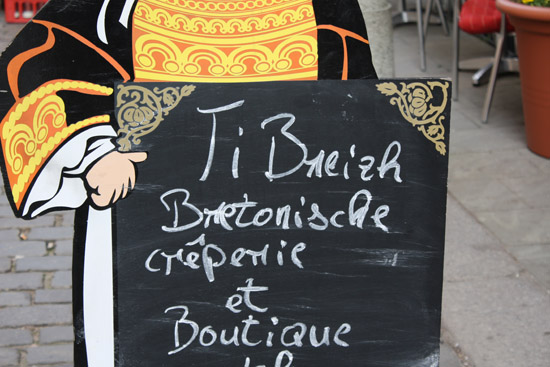 Ti Breizh
Bretonische
crêperie
et
Boutique